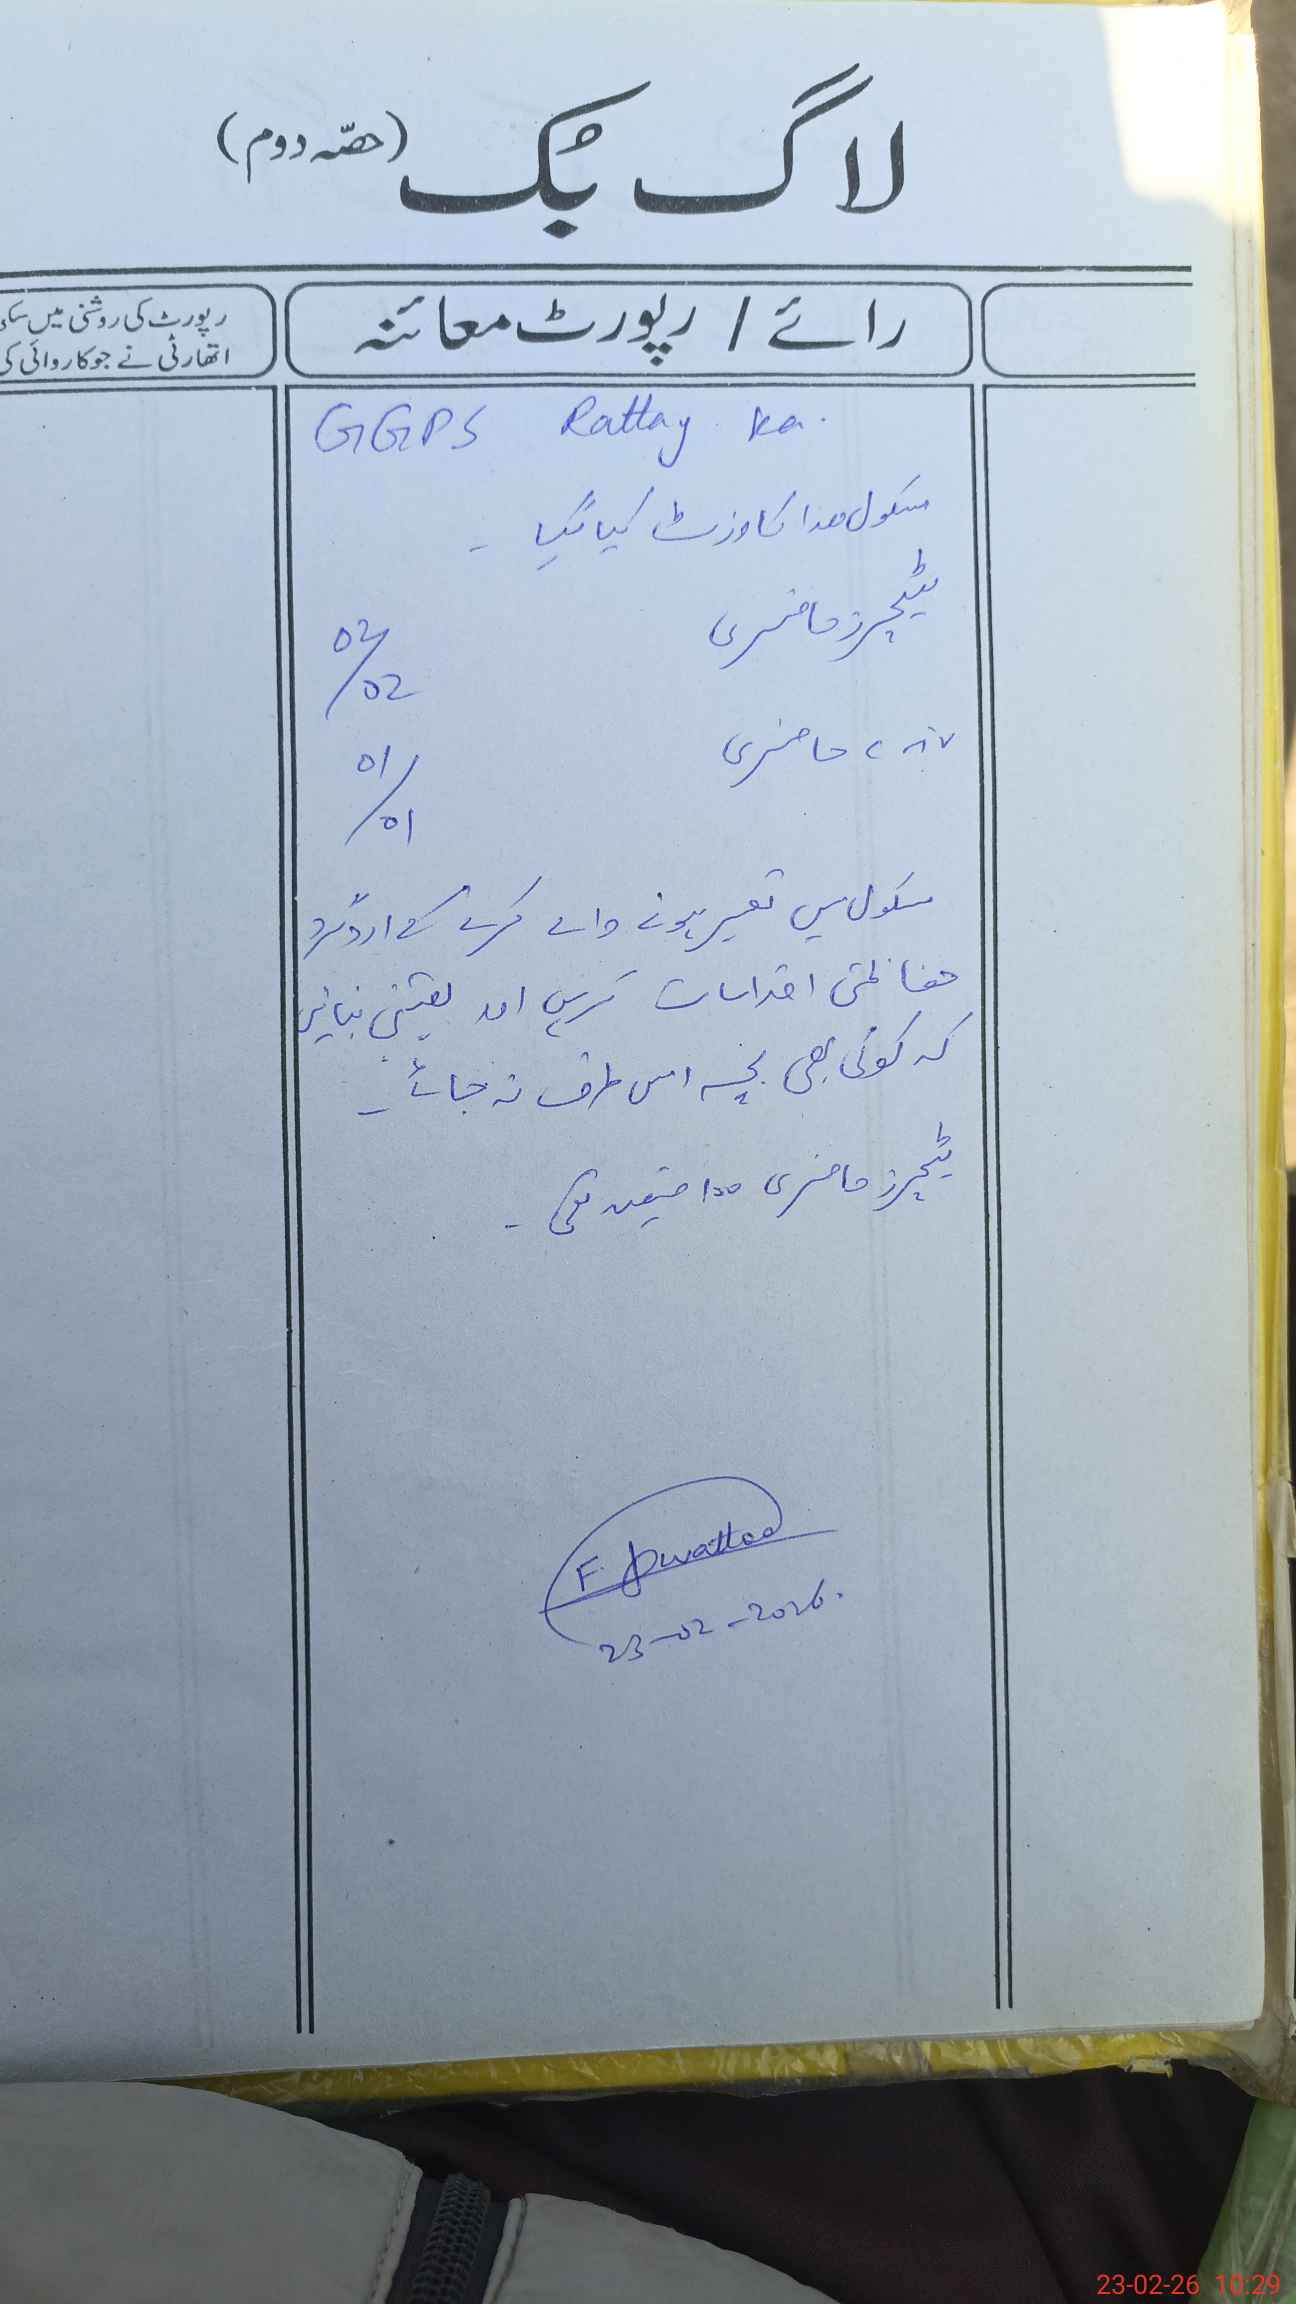 لاگ بُک (حصّہ دوم)
رائے / رپورٹ معائنہ
رپورٹ کی روشنی میں
اتھارٹی نے جو کاروائی کی
GGPS Rattay ka.
سکول ھذا کا وزٹ کیا گیا ۔
ٹیچرز حاضری 02/02
حاضری 01/01
سکول میں تعمیر ہونے والے کمرے کے اردگرد
حفاظتی اقدامات کریں اور یقینی بنائیں
کہ کوئی بھی بچہ اس طرف نہ جائے ۔
ٹیچرز حاضری
F.
23-02-2026.
23-02-26 10:29